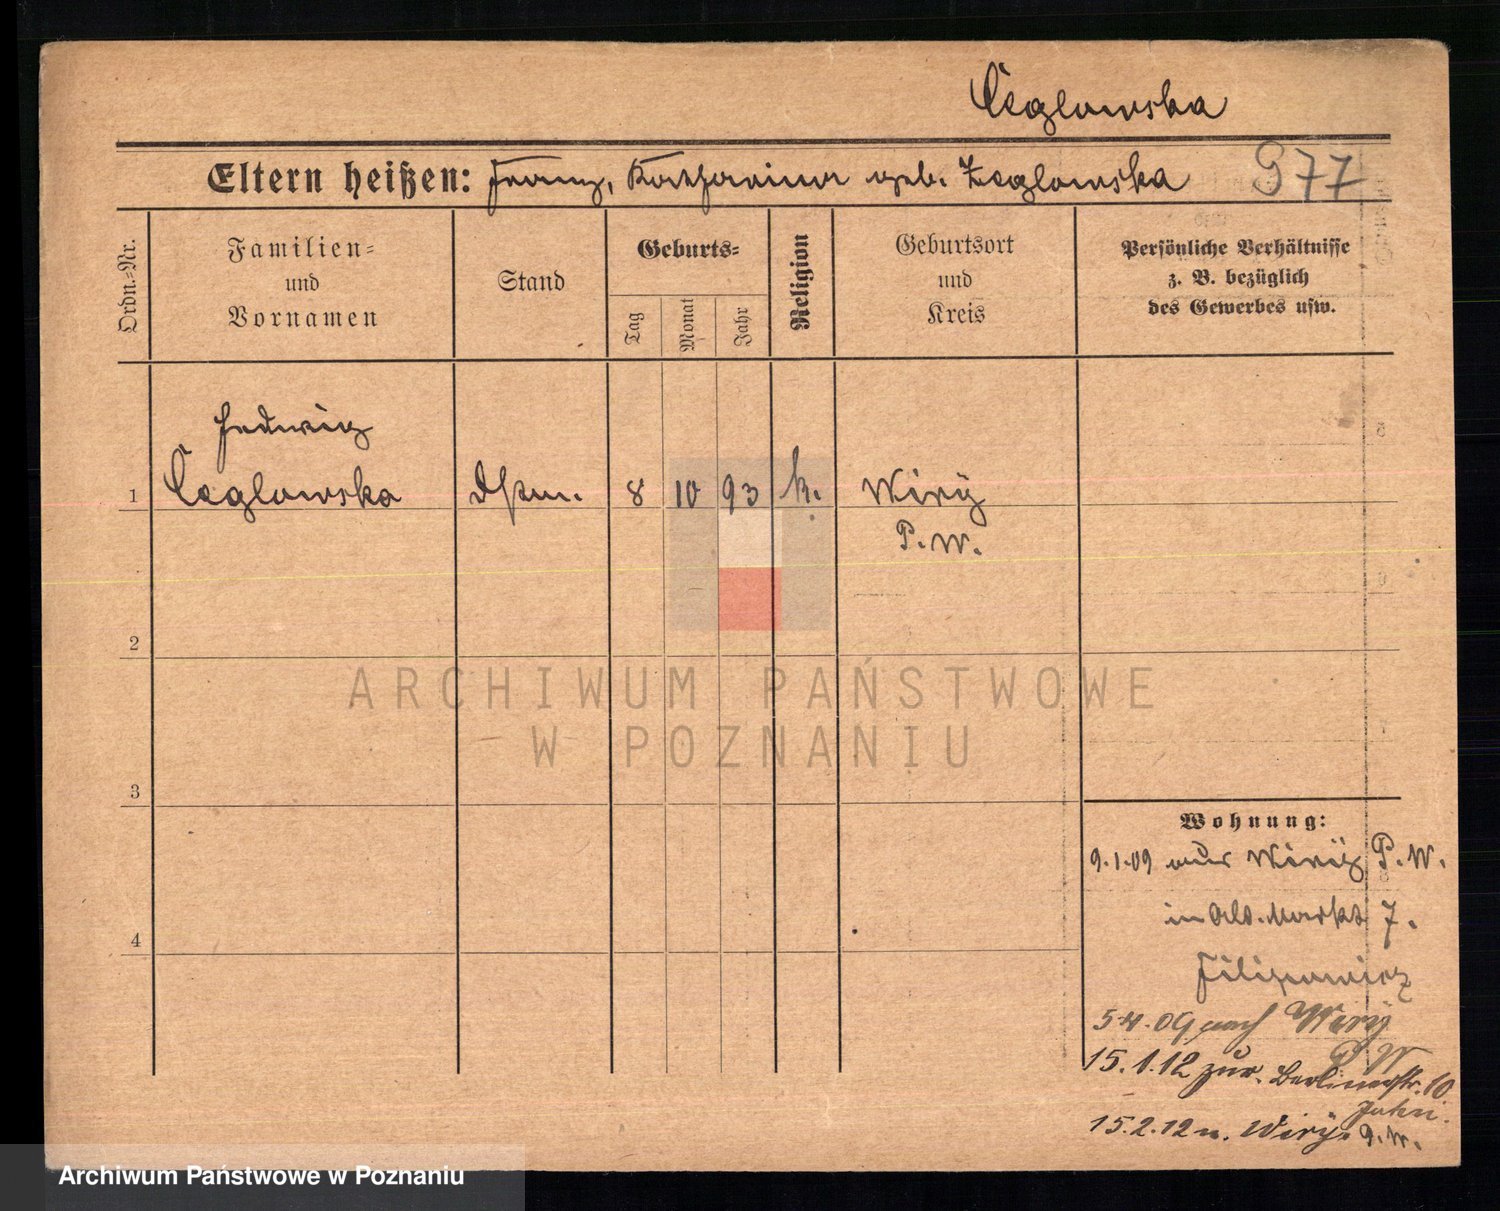 Ceglowska
Eltern heißen: Franz, Katharina geb. Zeglowska 977
Ordn.-Nr.
Familien-
und
Vornamen
Stand
Geburts-
Tag
Monat
Jahr
Religion
Geburtsort
und
Kreis
Persönliche Verhältnisse
z. B. bezüglich
des Gewerbes usw.
Hedwig
1 Ceglowska Dstm. 8 10 93 k. Wiry
P. W.
2
ARCHIWUM PAŃSTWOWE
W POZNANIU
3
Wohnung:
9.1.09 aus Wiry P. W.
in Alt. Markt 7.
Filipowicz
4
5.4.09 nach Wiry
P W
15.1.12 zur. Berlinerstr. 10
15.2.12 n. Wiry. P. W.
Archiwum Państwowe w Poznaniu